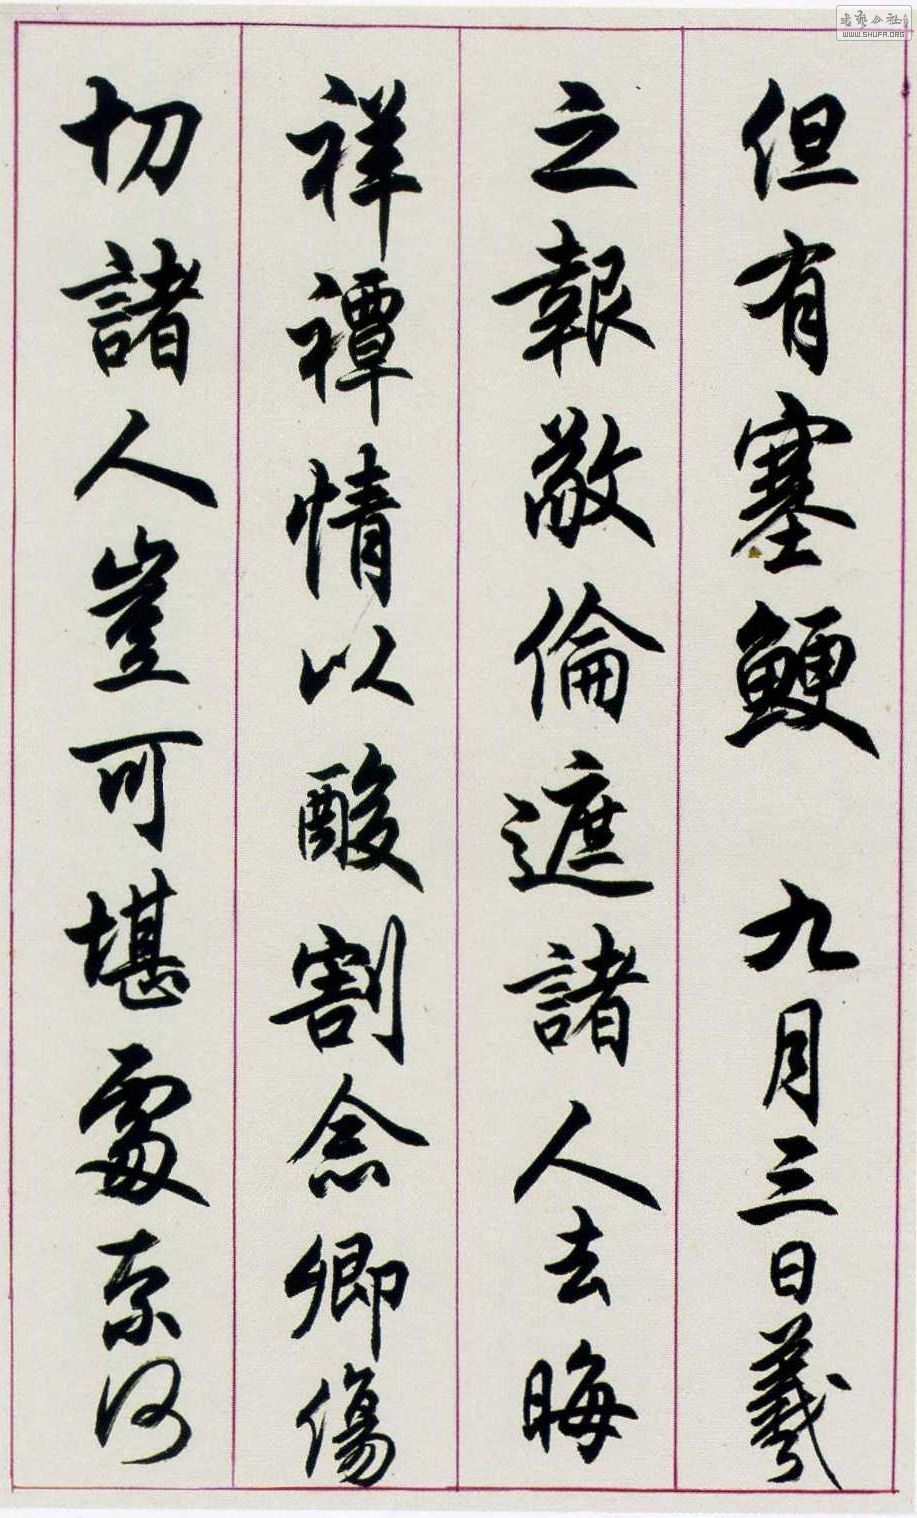 但有塞鯁 九月三日羲
之報敬倫遮諸人去晦
祥禫情以酸割念卿傷
切諸人豈可堪處奈何
WWW.SHUFA.ORG